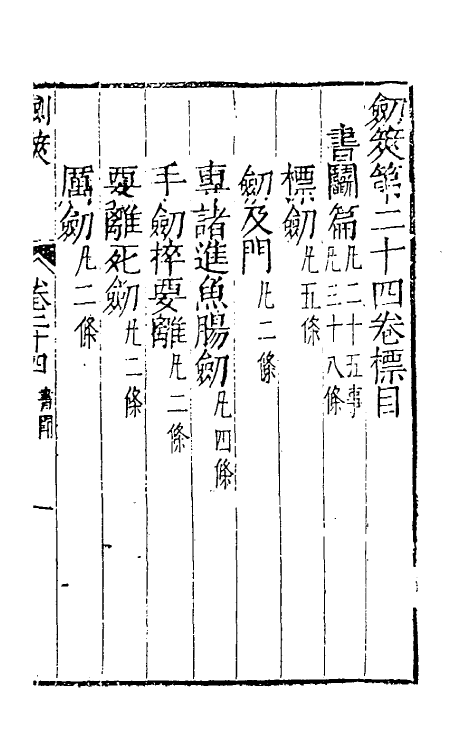 劒筴第二十四卷標目
書鬭篇 凡二十五事 凡三十八條
標劒 凡五條
劒及門 凡二條
專諸進魚腸劒 凡四條
手劒捽要離 凡二條
要離死劒 凡二條
厲劒 凡二條
劒筴 卷二十四 書鬭 一